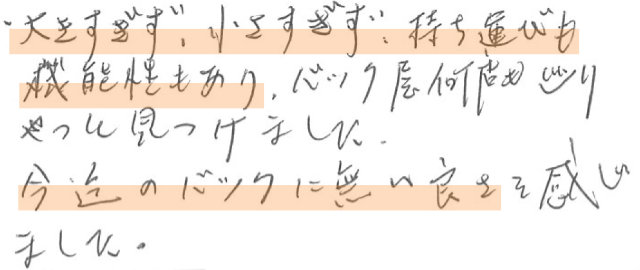 大きすぎず、小さすぎず、持ち運びも
機能性もあり、バック屋何店も巡り
やっと見つけました。
今迄のバックに無い良さを感じ
ました。